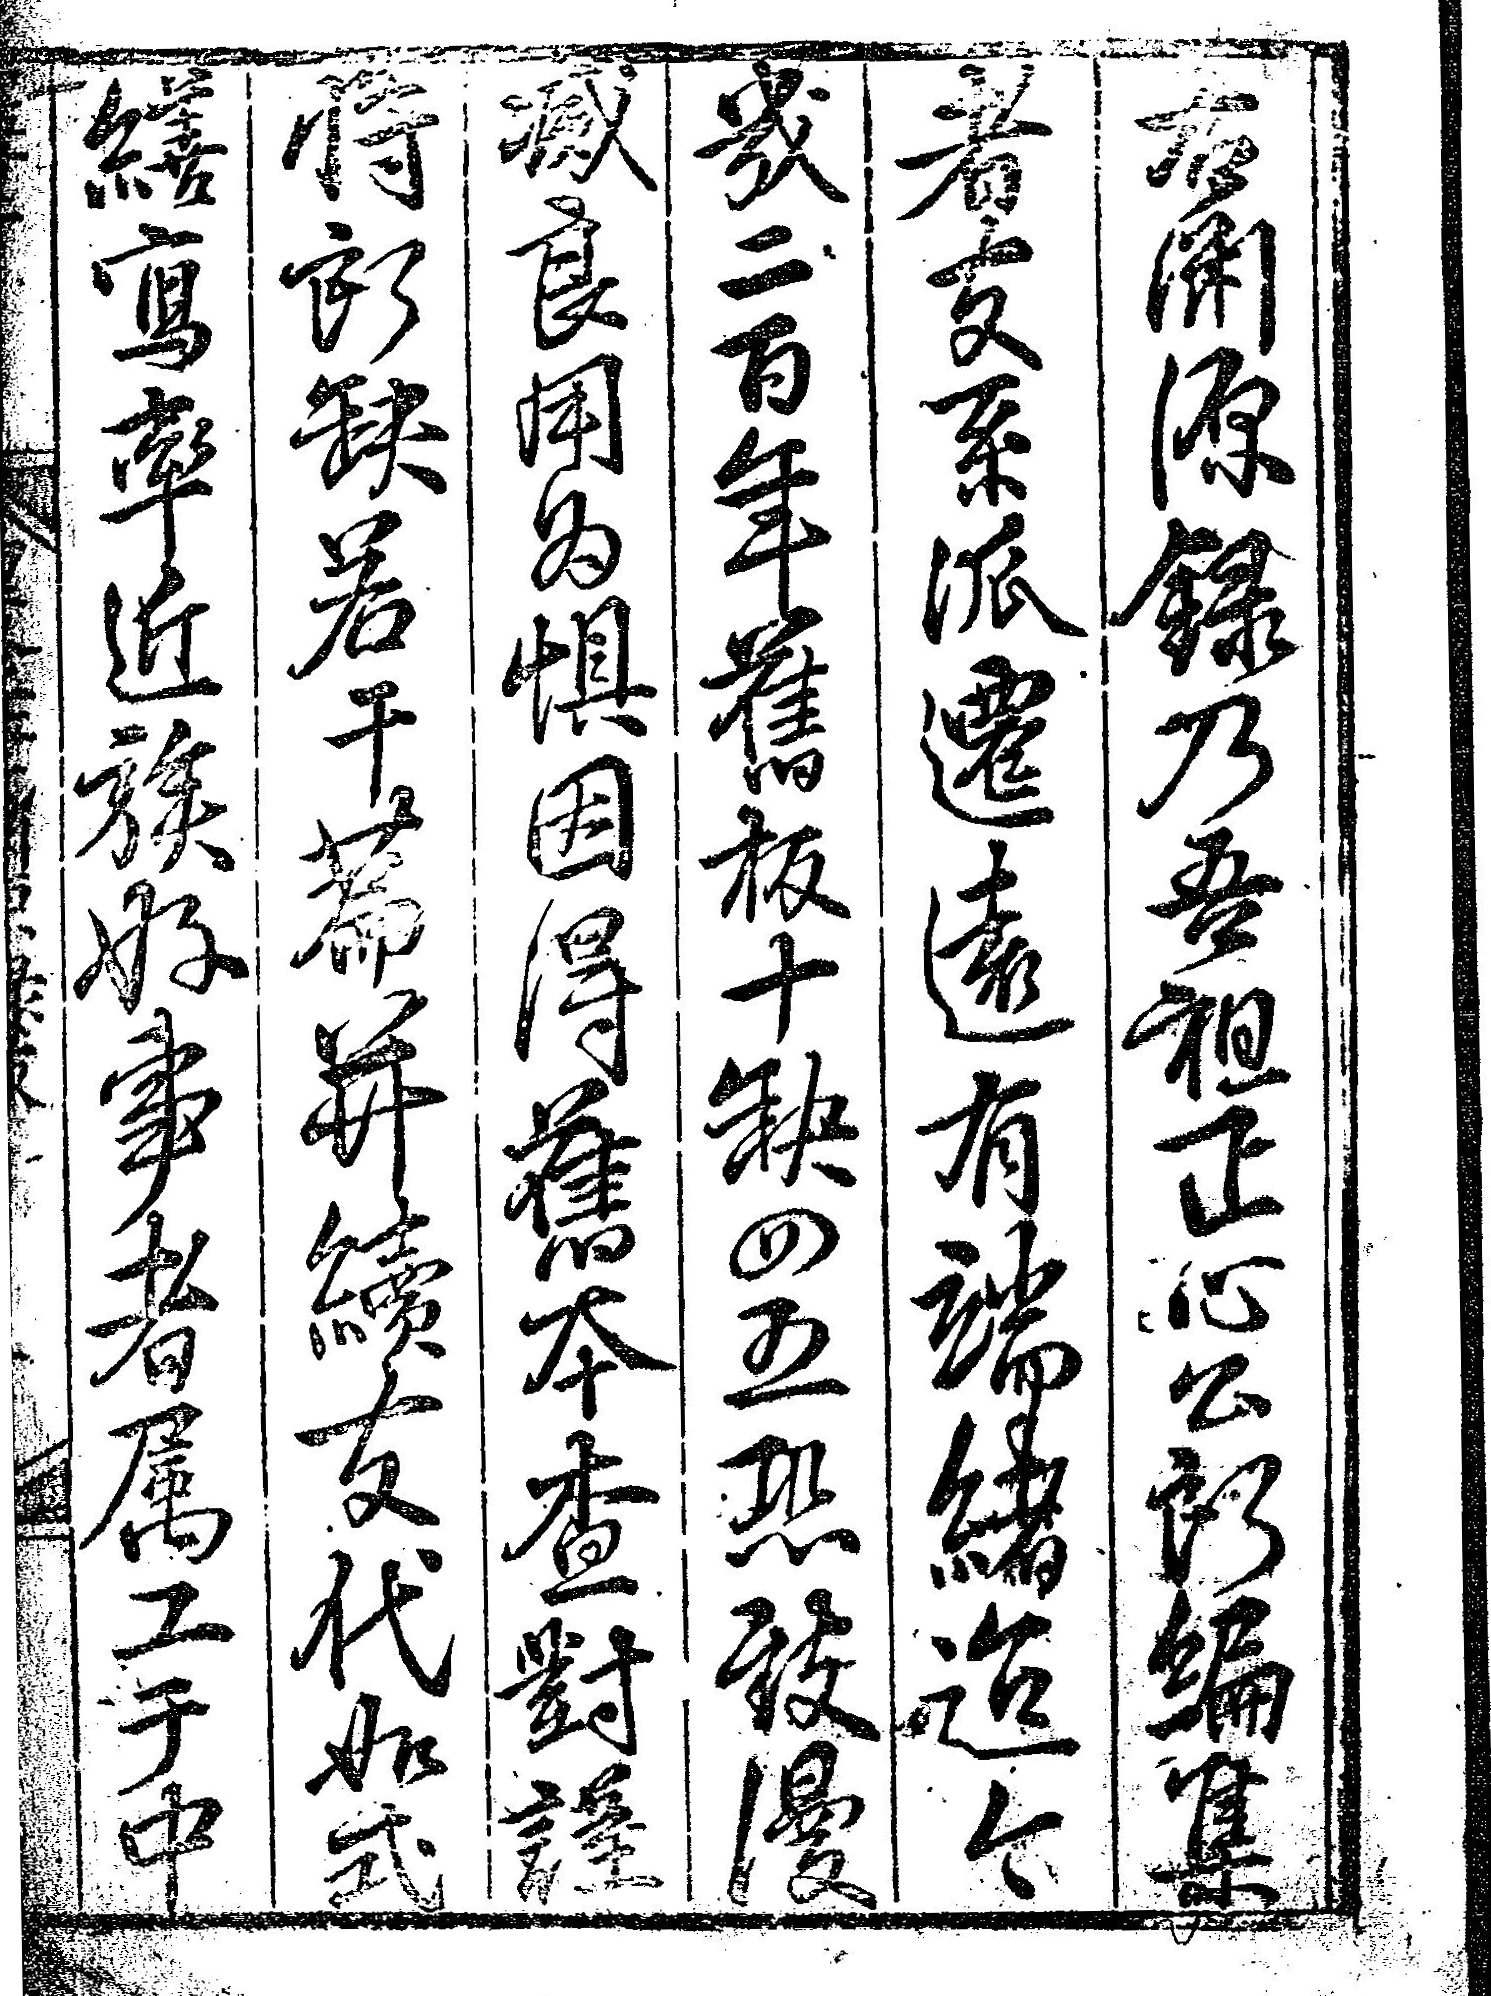 右淵源錄乃吾祖正心公所編集
者支系派遷遠有端緒迨今
幾二百年舊板十缺四五恐致漫
滅良用為惧因得舊本查對謹
將所缺若干篇并續支代如式
繕寫率近族好事者属工于中